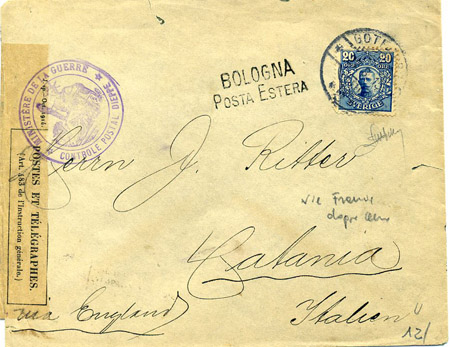 MINISTÈRE DE LA GUERRE
CONTRÔLE POSTAL
DIEPPE
BOLOGNA
POSTA ESTERA
20 20
SVERIGE
POSTES ET TÉLÉGRAPHES.
(Art. 483 de l'Instruction générale.)
Herrn J. Ritter
via
Catania
via England
Italien
12/